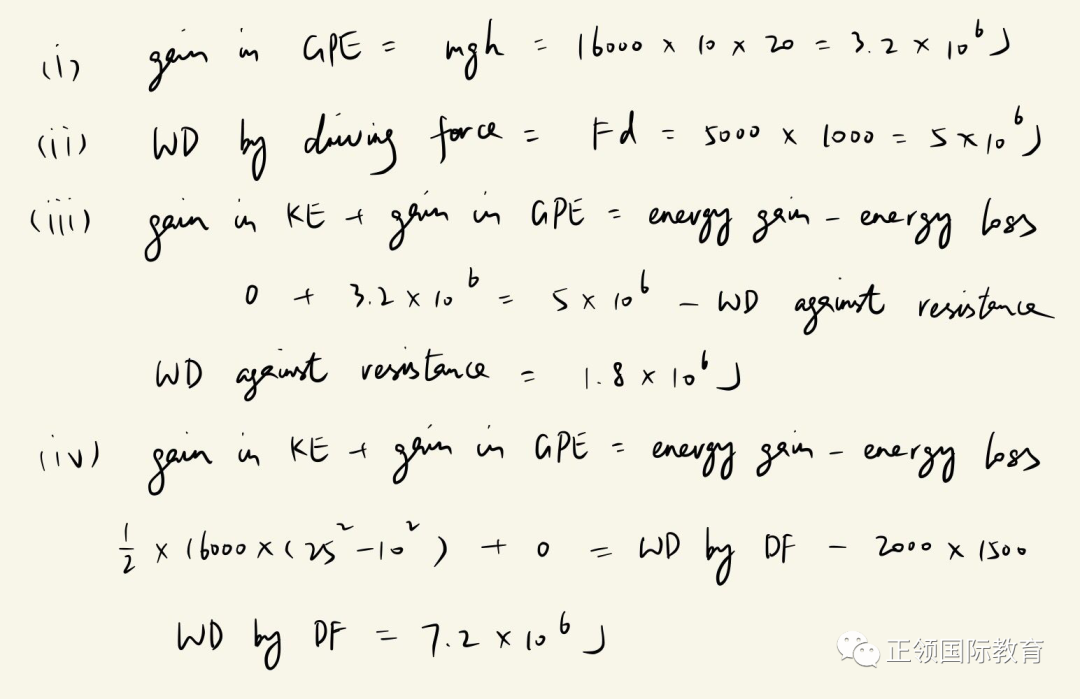 (i) gain in GPE = mgh = 16000 × 10 × 20 = 3.2 × 10⁶ J
(ii) WD by driving force = Fd = 5000 × 1000 = 5 × 10⁶ J
(iii) gain in KE + gain in GPE = energy gain - energy loss
0 + 3.2 × 10⁶ = 5 × 10⁶ - WD against resistance
WD against resistance = 1.8 × 10⁶ J
(iv) gain in KE + gain in GPE = energy gain - energy loss
½ × 16000 × (25² - 10²) + 0 = WD by DF - 2000 × 1500
WD by DF = 7.2 × 10⁶ J
正领国际教育